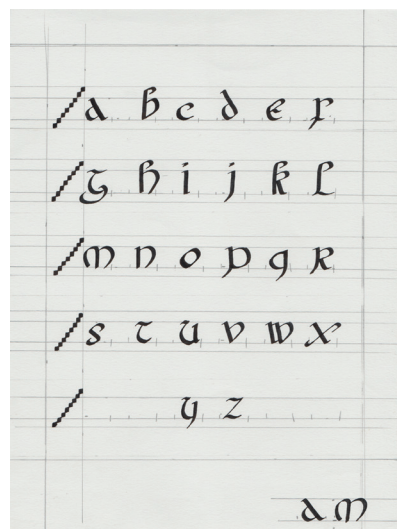 a b c d e f
g h i j k l
m n o p q r
s t u v w x
y z
a m